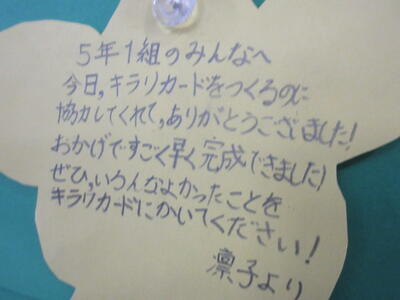 5年1組のみんなへ
今日,キラリカードをつくるのに
協力してくれて,ありがとうございました!
おかげですごく早く完成できました!
ぜひ,いろんなよかったことを
キラリカードにかいてください!
凛子より